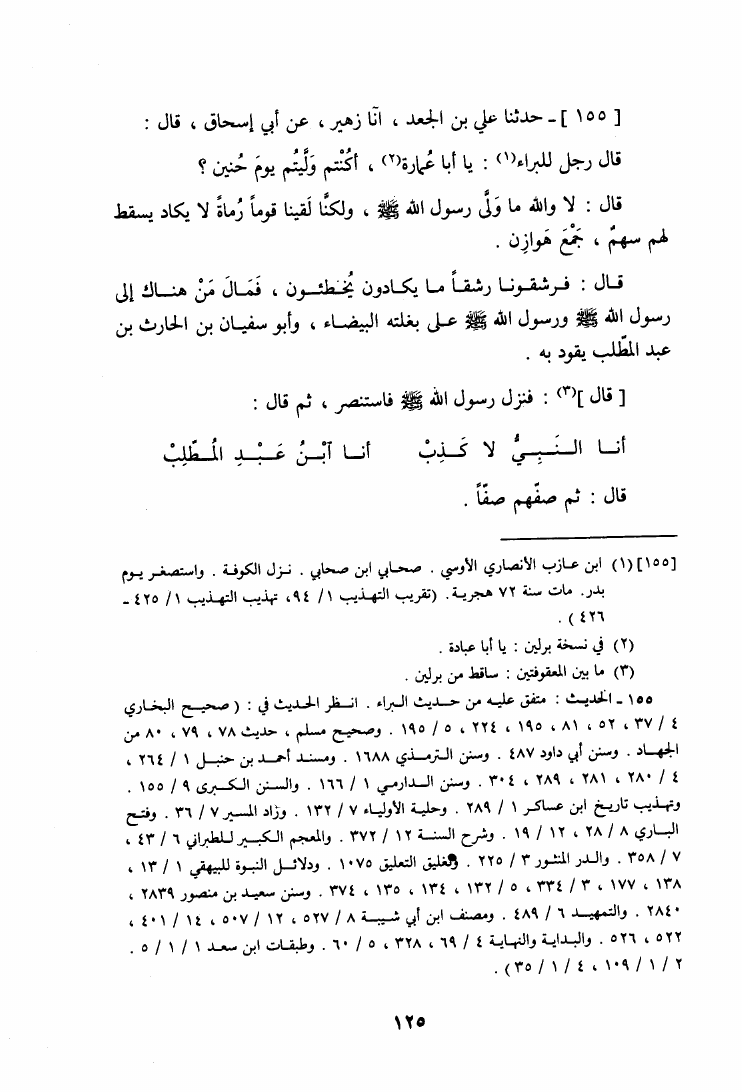 [ ١٥٥ ] ـ حدثنا علي بن الجعد ، أنا زهير ، عن أبي إسحاق ، قال :
قال رجل للبراء(١) : يا أبا عُمارة(٢) ، أكُنْتم وَلَّيتُم يومَ حُنين ؟
قال : لا والله ما وَلَّى رسول الله ﷺ ، ولكنَّا لَقينا قوماً رُماةً لا يكاد يسقط
لهم سهمٌ ، جَمْعَ هَوازِن .
قـال : فـرشقـونـا رشقـاً مـا يكـادون يُخـطئـون ، فَمَـالَ مَنْ هنـاك إلى
رسول الله ﷺ ورسول الله ﷺ عـلى بغلته البيضـاء ، وأبو سفيـان بن الحارث بن
عبد المطّلب يقود به .
[ قال ](٣) : فنزل رسول الله ﷺ فاستنصر ، ثم قال :
أنـا الـنَّـبِـيُّ لا كَـذِبْ أنـا آبْـنُ عَـبْـدِ المُـطَّلِبْ
قال : ثم صفّهم صفّاً .
[١٥٥] (١) ابن عـازب الأنصاري الأوسي . صحـابي ابن صحابي . نـزل الكوفـة . واستصغـر يـوم
بدر. مات سنة ٧٢ هجريـة. (تقريب التهـذيب ١ / ٩٤، تهذيب التهـذيب ١ / ٤٢٥ ـ
٤٢٦ ) .
(٢) في نسخة برلين : يا أبا عبادة .
(٣) ما بين المعقوفتين : ساقط من برلين .
١٥٥ ـ الحديث : متفق عليـه من حـديث البراء . انـظر الحـديث في : ( صحيـح البخـاري
٤ / ٣٧ ، ٥٢ ، ٨١ ، ١٩٥ ، ٢٢٤ ، ٥ / ١٩٥ . وصحيح مسلم ، حديث ٧٨ ، ٧٩ ، ٨٠ من
الجهـاد . وسنن أبي داود ٤٨٧ . وسنن التـرمـذي ١٦٨٨ . ومسنـد أحمـد بن حنبـل ١ / ٢٦٤ ،
٤ / ٢٨٠ ، ٢٨١ ، ٢٨٩ ، ٣٠٤ . وسنن الـدارمي ١ / ١٦٦ . والسنن الكـبـرى ٩ / ١٥٥ .
وتهـذيب تاريـخ ابن عسـاكـر ١ / ٢٨٩ . وحليـة الأوليـاء ٧ / ١٣٢ . وزاد المسير ٧ / ٣٦ . وفتـح
البـاري ٨ / ٢٨ ، ١٢ / ١٩ . وشرح السنـة ١٢ / ٣٧٢ . والمعجم الكـبـيـر للـطبراني ٦ / ٤٣ ،
٧ / ٣٥٨ . والـدر المنثـور ٣ / ٢٢٥ . وتغليق التعليق ١٠٧٥ . ودلائـل النبـوة للبيهقي ١ / ١٣ ،
١٣٨ ، ١٧٧ ، ٣ / ٣٣٤ ، ٥ / ١٣٢ ، ١٣٤ ، ١٣٥ ، ٣٧٤ . وسنن سعيـد بن منصور ٢٨٣٩ ،
٢٨٤٠ . والتمهيـد ٦ / ٤٨٩ . ومصنف ابن أبي شـيبـة ٨ / ٥٢٧ ، ١٢ / ٥٠٧ ، ١٤ / ٤٠١ ،
٥٢٢ ، ٥٢٦ . والبـدايـة والنهايـة ٤ / ٦٩ ، ٣٢٨ ، ٥ / ٦٠ . وطبقـات ابن سعـد ١ / ١ / ٥ .
٢ / ١ / ١٠٩ ، ٤ / ١ / ٣٥) .
١٢٥